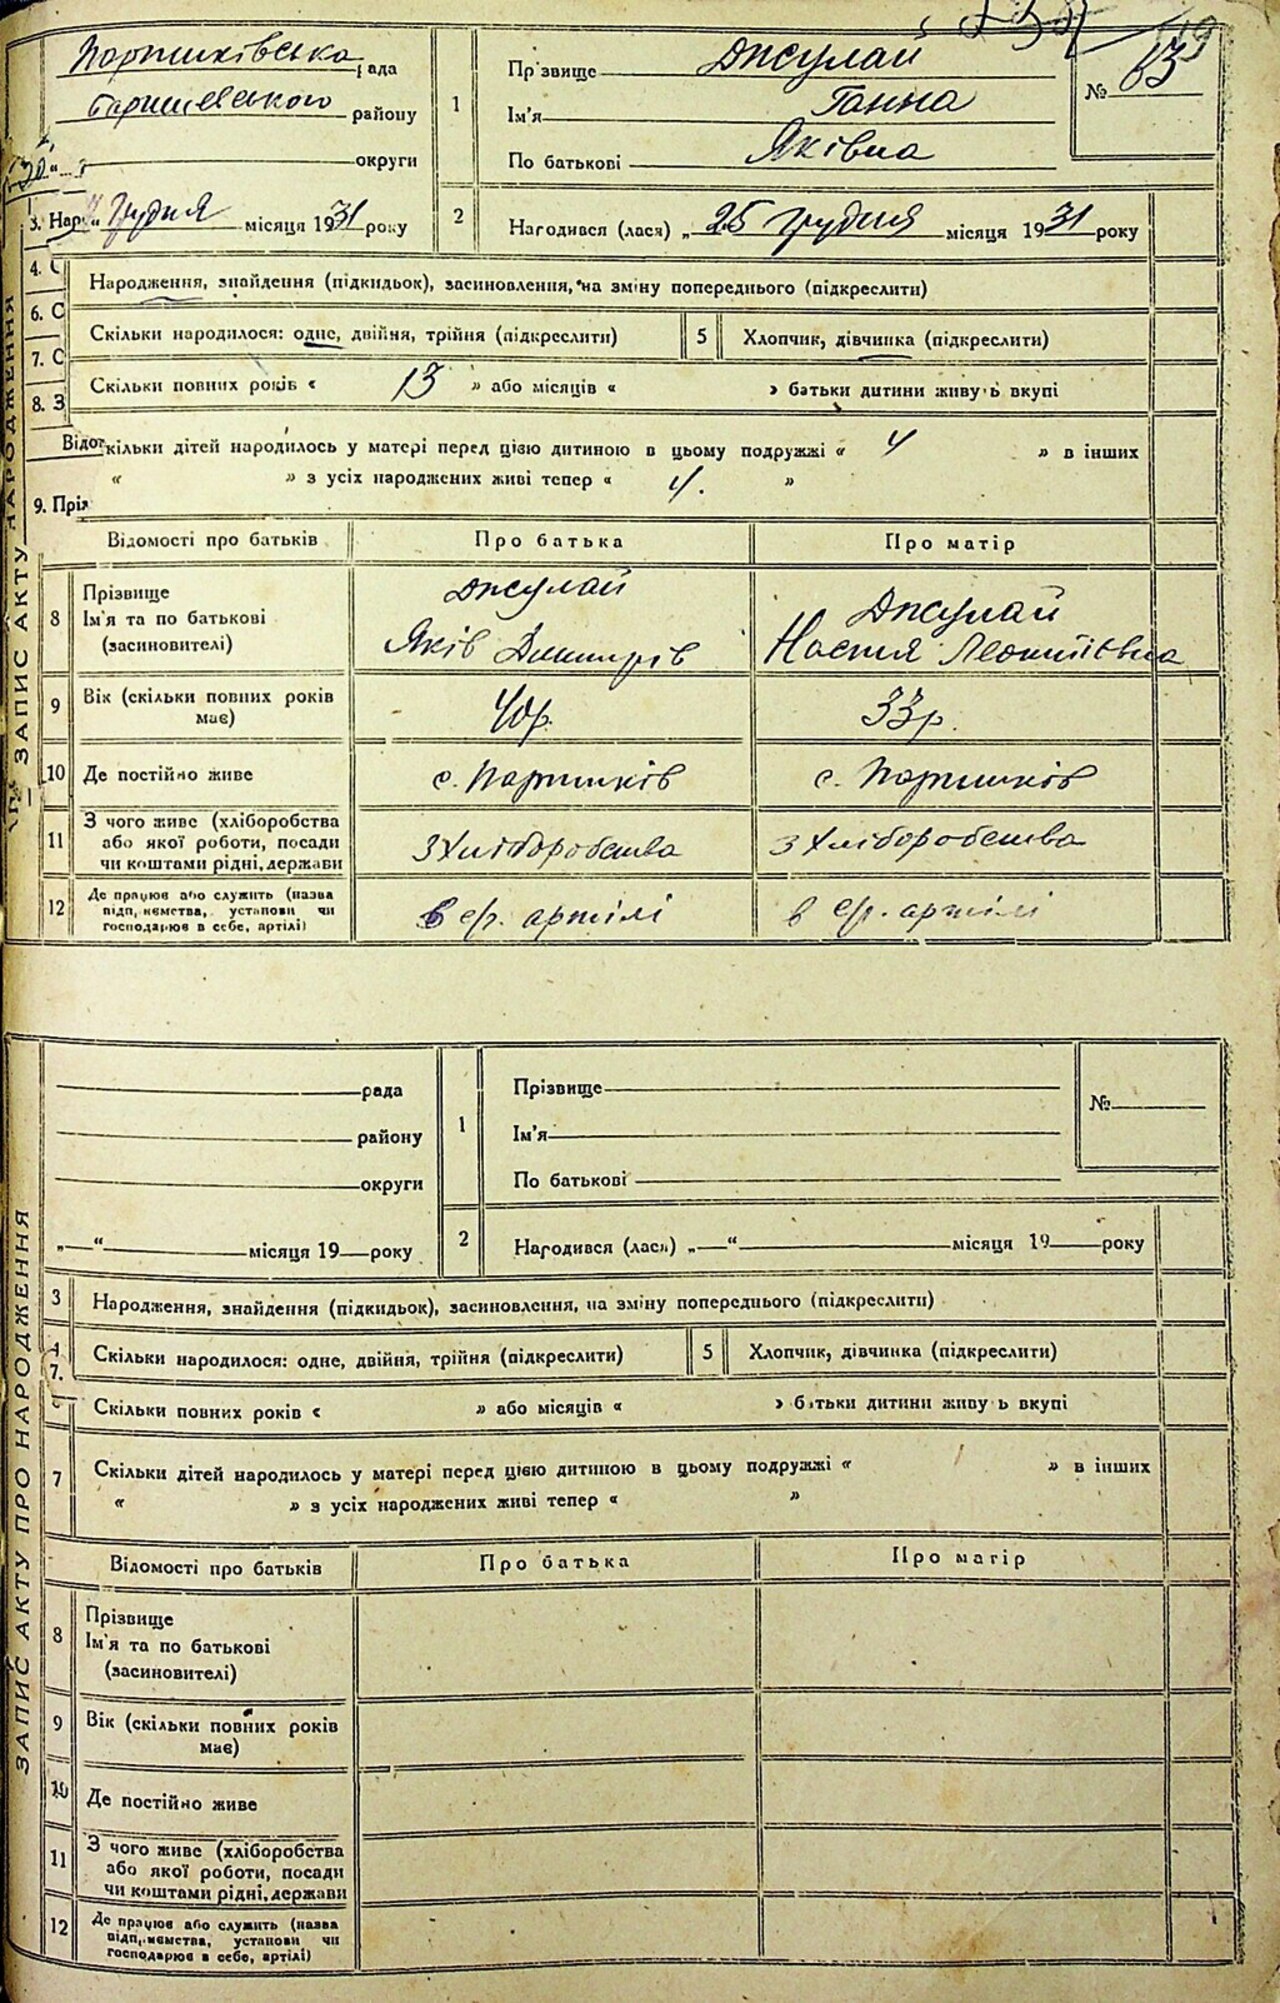 Паришківська рада
Баришевського району
округи
Грудня місяця 1931 року
1
Прізвище Джулай
Ім'я Ганна
По батькові Яківна
№ 63
2
Народився (лася) „25 грудня місяця 1931 року
3. Нар
4. С
6. С
7. С
8. З
Відом
9. Прі
ЗАПИС АКТУ НАРОДЖЕННЯ
Народження, знайдення (підкидьок), засиновлення, на зміну попереднього (підкреслити)
Скільки народилося: одне, двійня, трійня (підкреслити)
5 Хлопчик, дівчинка (підкреслити)
Скільки повних років « 13 » або місяців « » батьки дитини живуть вкупі
кільки дітей народилось у матері перед цією дитиною в цьому подружжі « 4 » в інших
« » з усіх народжених живі тепер « 4. »
Відомості про батьків Про батька Про матір
8 Прізвище Джулай Джулай
Ім'я та по батькові Яків Дмитрів Настя
(засиновителі)
9 Вік (скільки повних років 40р. 33р.
має)
10 Де постійно живе с. Паришків с. Паришків
11 З чого живе (хліборобства
або якої роботи, посади з хліборобства з хліборобства
чи коштами рідні, держави
12 Де працює або служить (назва
підприємства, установи чи в с/г. артілі в с/г. артілі
господарює в себе, артілі)
ЗАПИС АКТУ ПРО НАРОДЖЕННЯ
рада
району
округи
„—“ місяця 19 року
1
Прізвище
Ім'я
По батькові
№
2
Народився (лася) „—“ місяця 19 року
3 Народження, знайдення (підкидьок), засиновлення, на зміну попереднього (підкреслити)
4 Скільки народилося: одне, двійня, трійня (підкреслити)
5 Хлопчик, дівчинка (підкреслити)
7.
Скільки повних років « » або місяців « » батьки дитини живуть вкупі
7 Скільки дітей народилось у матері перед цією дитиною в цьому подружжі « » в інших
« » з усіх народжених живі тепер « »
Відомості про батьків Про батька Про матір
8 Прізвище
Ім'я та по батькові
(засиновителі)
9 Вік (скільки повних років
має)
10 Де постійно живе
11 З чого живе (хліборобства
або якої роботи, посади
чи коштами рідні, держави
12 Де працює або служить (назва
підприємства, установи чи
господарює в себе, артілі)